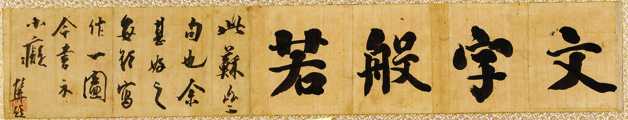 文字般若
此蘇
句也余
甚好之
每欲寫
作一圖
今書示
小癡